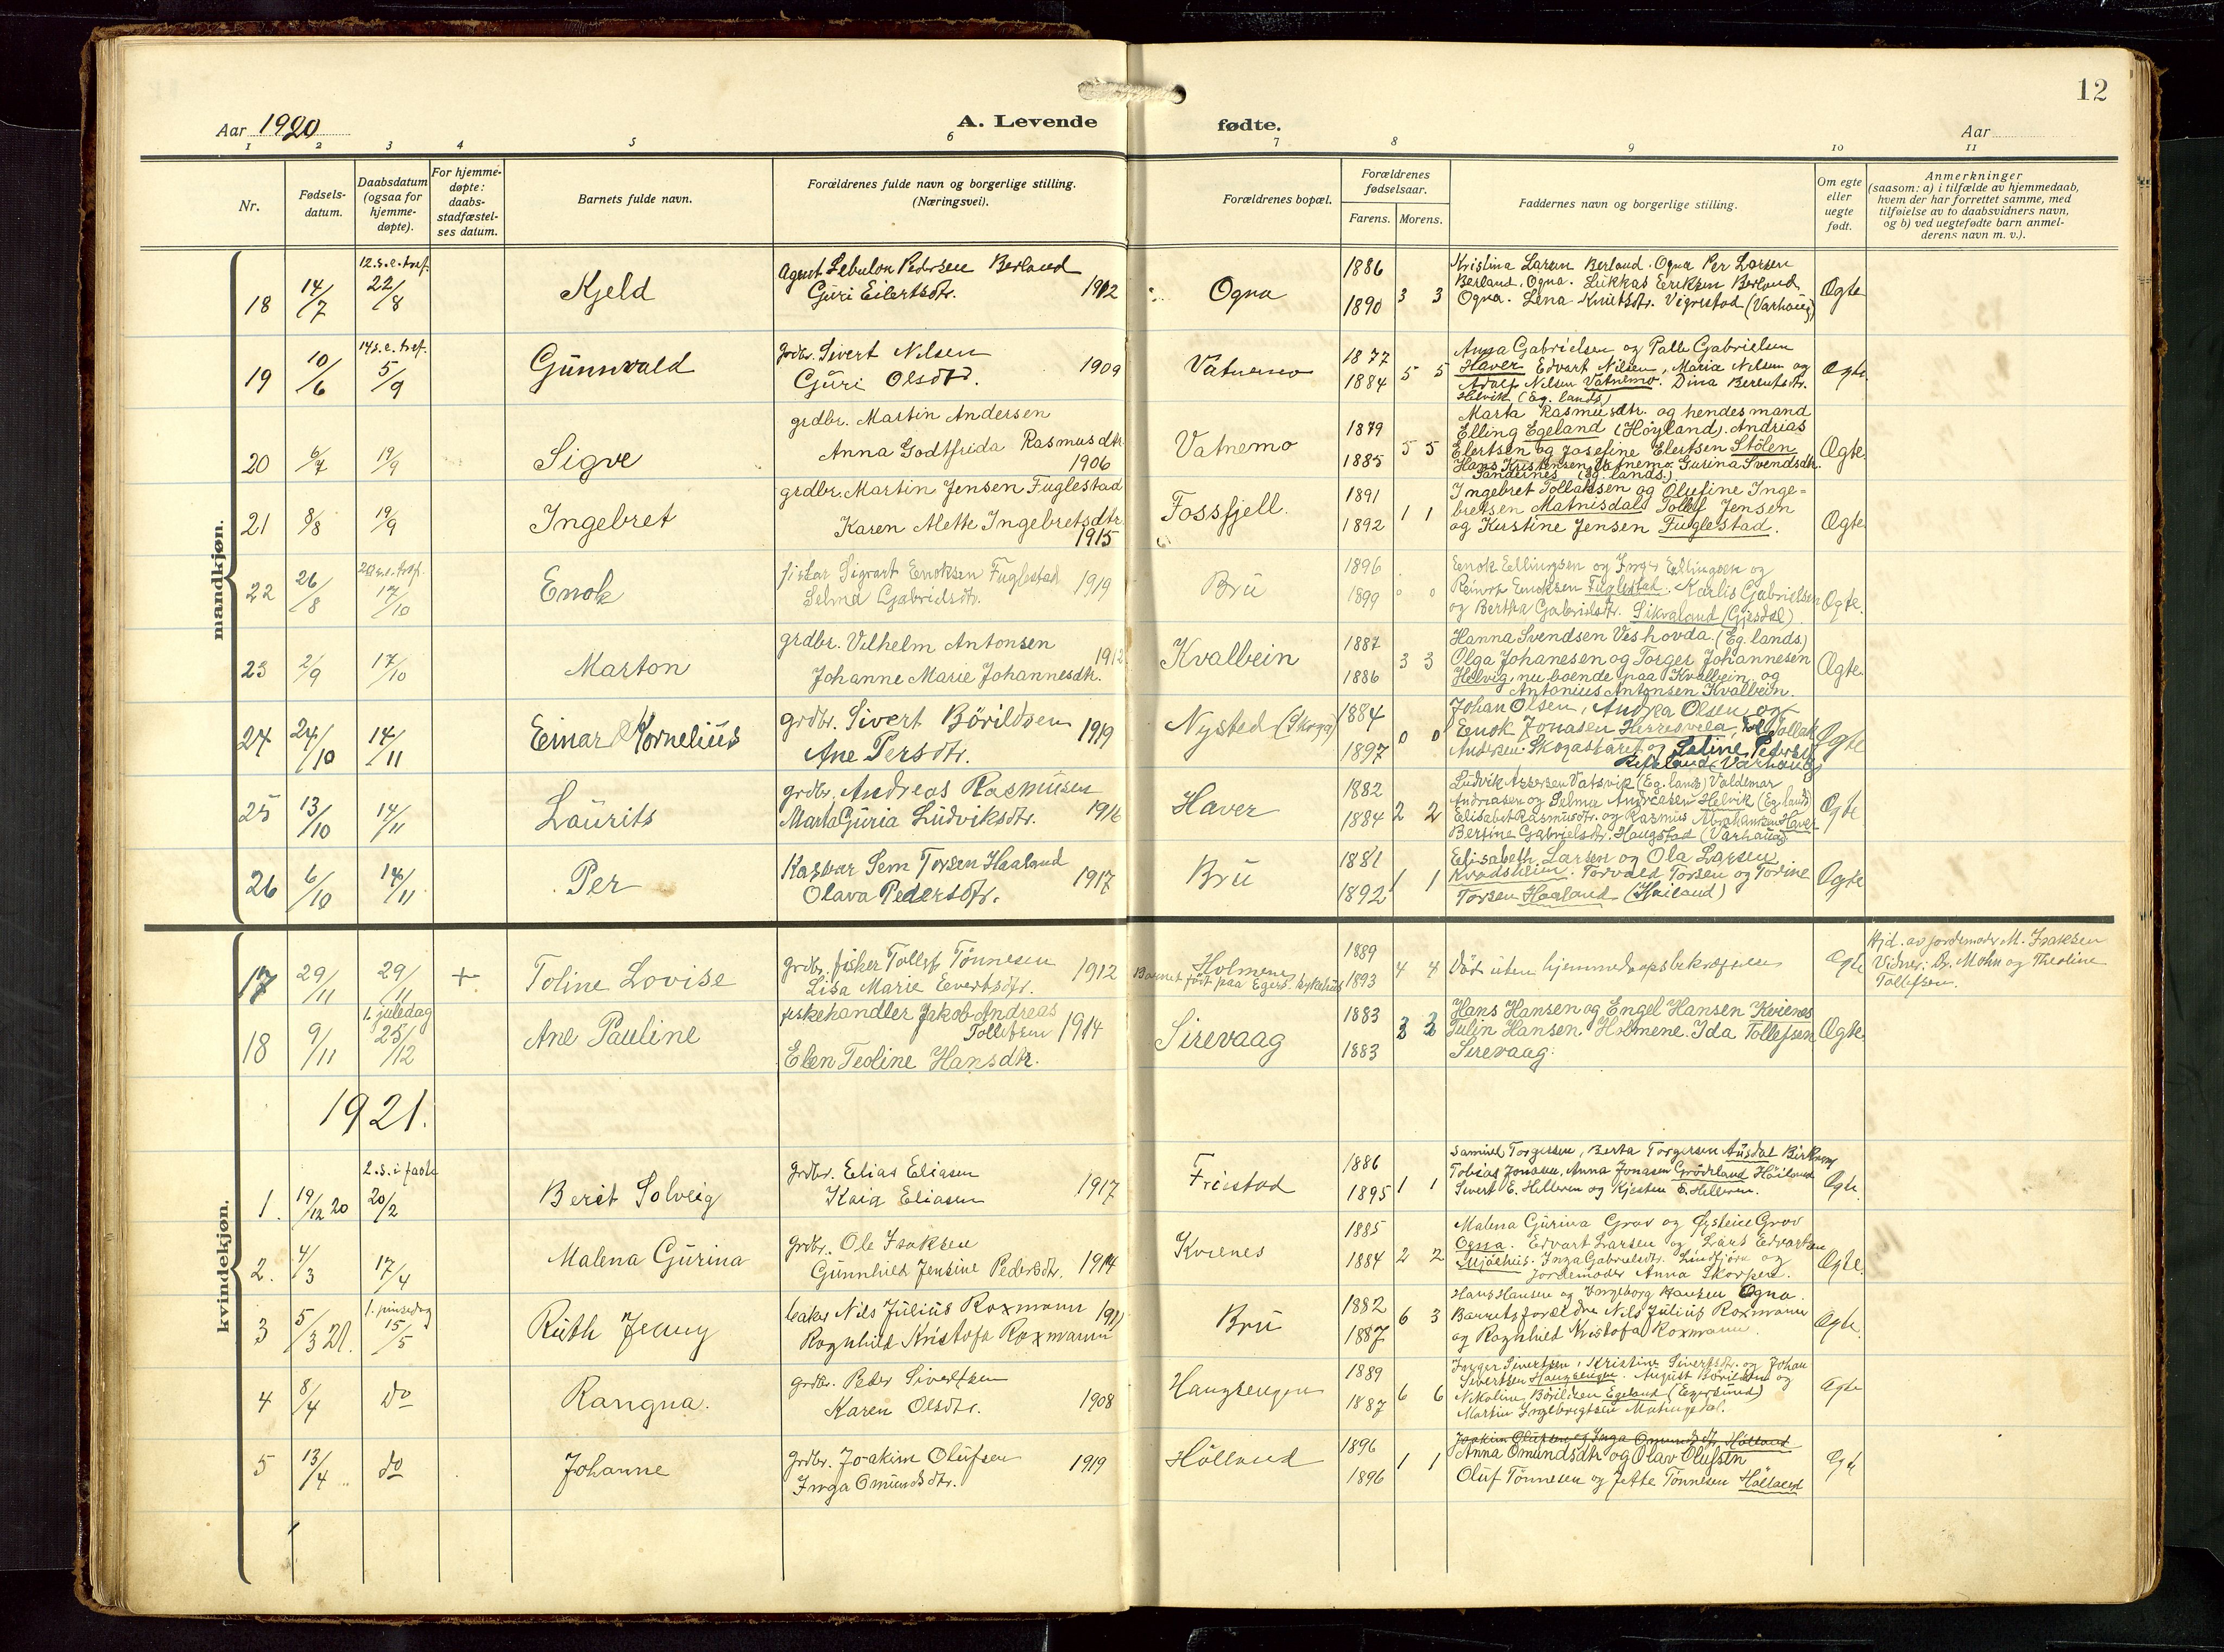 12
Aar 1920
A. Levende fødte.
Aar
1 2 3 4 5 6 7 8 9 10 11
Nr.
Fødsels-
datum.
Daabsdatum
(ogsaa for
hjemme-
døpte).
For hjemme-
døpte:
daabs-
stadfæstel-
ses datum.
Barnets fulde navn.
Forældrenes fulde navn og borgerlige stilling.
(Næringsvei).
Forældrenes bopæl.
Forældrenes
fødselsaar.
Farens. Morens.
Faddernes navn og borgerlige stilling.
Om egte
eller
uegte
født.
Anmerkninger
(saasom: a) i tilfælde av hjemmedaab,
hvem der har forrettet samme, med
tilføielse av to daabsvidners navn,
og b) ved uegtefødte barn anmel-
derens navn m. v.).
mandkjøn.
18 14/7 12.s.e.tref. 22/8 Kjeld
Agent Sebulon Pedersen Berland
Guri Eilertsdtr. 1912
Ogna 1886 1890 3 3
Kristina Larsen Berland. Ogna Per Larsen
Berland. Ogna. Lukkas Eriksen Berland
Ogna. Lena Knutsdtr. Vigrestad (Varhaug)
Ægte
19 10/6 14 s.e.tref. 5/9 Gunnvald
grdbr. Sivert Nilsen
Guri Olsdtr. 1909
Vatnemo 1877 1884 5 5
Anna Gabrielsen og Palle Gabrielsen
Haver Edvart Nilsen, Maria Nilsen og
Adolf Nilsen Vatnemo. Dina Berentsdtr.
Helvik (Eg. lands)
Ægte.
20 6/7 19/9 Sigve
grdbr. Martin Andersen
Anna Godtfrida Rasmusdtr.
1906
Vatnemo 1879 1885 5 5
Marta Rasmusdtr. og hendes mand
Elling Egeland (Høyland). Andrias
Elertsen og Josefine Elertsen Stölen
Hans Kristensen Vatnemo. Gurina Svendsdtr.
Sandernes (Eg. lands.)
Ægte.
21 8/8 19/9 Ingebret
grdbr. Martin Jensen Fuglestad
Karen Mette Ingebretsdtr.
1915
Fossfjell. 1891 1892 1 1
Ingebret Tollaksen og Olufine Inge=
bretsen Matnisdal, Tollef Jensen
og Kristine Jensen Fuglestad.
Ægte.
22 26/8 17/10 Enok
fisker Sigvart Enoksen Fuglestad
Selma Gabrielsdtr. 1919
Bru 1896 1899 0 0
Enok Ellingsen og Inger Ellingsen og
Reinert Enoksen Fuglestad. Karlis Gabrielsen
og Bertha Gabrielsdtr. Sikvaland (Gjesdal).
Ægte.
23 2/9 17/10 Marton
grdbr. Vilhelm Antonsen
Johanne Marie Johannesdtr. 1912
Kvalbein 1887 1886 3 3
Hanna Svendsen Veshovda. (Eg. lands.)
Olga Johanesen og Torger Johannesen
Helvig, nu boende paa Kvalbein og
Antonius Antonsen Kvalbein.
Ægte.
24 24/10 14/11 Einar Kornelius
grdbr. Sivert Börildsen
Ane Persdtr. 1919
Nysted (Skoga) 1884 1897 0 0
Johan Olsen, Andrea Olsen og
Enok Jonasen Herresvela, Tollak
Andersen Skogaskaret og Saline Pedersdtr.
Refsland (Varhaug)
Ægte
25 13/10 14/11 Laurits
grdbr. Andreas Rasmusen
Marta Guria Ludviksdtr. 1916
Haver 1882 1884 2 2
Ludvik Assersen Vatsvik (Eg. lands) Valdemar
Andreasen og Selma Andreasen Helvik (Eg. lands)
Elisabet Rasmusdtr. og Rasmus Abrahamsen Haver
Bertine Gabrielsdtr. Haugstad (Varhaug)
Ægte
26 6/10 14/11 Per
Kaspar Sem Torsen Haaland
Olava Pedersdtr. 1917
Bru 1881 1892 1 1
Elisabeth Larsen og Ola Larsen
Kvadsheim. Torvald Torsen og Torine
Torsen Haaland (Høiland)
Ægte
kvindekjøn.
17 29/11 29/11 + Toline Lovise
grdbr. fisker Tollef Tönnesen
Lisa Marie Evertsdtr. 1912
Holmene
Barnet født paa Egers. sykehus
1889 1893 4 4
Död uten hjemmedaapsbekræftelse
Ægte
Hjd. av jordemoder M. Isaksen
Vidner: Dr. Mohn og Theoline
Tollefsen.
18 9/11 1. juledag 25/12 Ane Pauline
fiskehandler Jakob Andreas
Tollefsen 1914
Elen Teoline Hansdtr.
Sirevaag 1883 1883 3 3
Hans Hansen og Engel Hansen Kvienes
Tulin Hansen. Holmene. Ida Tollefsen
Sirevaag.
Ægte.
1921.
1. 19/12 20 2.s.i faste 20/2 Berit Solveig
grdbr. Elias Eliasen
Kaia Eliasen 1917
Freistad 1886 1895 1 1
Samuel Torgersen, Berta Torgersen Ausdal Birkrem
Tobias Jonasen, Anna Jonasen Grödeland Höiland
Sivert E. Helleren og Kjersten E. Helleren.
Ægte.
2. 4/3 17/4 Malena Gurina
grdbr. Ole Isaksen
Gunnhild Jensine Pedersdtr. 1914
Kvienes 1885 1884 2 2
Malena Gurina Grov og Øystein Grov
Ogna. Edvart Larsen og Lars Edvartsen
Sujöthus. Inga Gabrielsdtr. Lindtjörn og
Jordemoder Anna Skorpen.
Ægte.
3 5/3 21. 1. pinsedag 15/5 Ruth Jenny
baker Nils Julius Roxmann 1911
Ragnhild Kristofa Roxmann
Bru 1882 1887 6 3
Hans Hansen og Ingeborg Hansen Ogna.
Barnets forældre Nils Julius Roxmann
og Ragnhild Kristofa Roxmann.
Ægte.
4 8/4 do Rangna.
grdbr. Peder Sivertsen
Karen Olsdtr. 1908
Haugsengen 1889 1887 6 6
Inger Sivertsen, Kristine Sivertsdtr. og Johan
Sivertsen Haugsengen. August Börildsen og
Nikoline Börildsen Egeland (Egersund)
Martin Ingebrigtsen Matingsdal.
Ægte
5 13/4 do Johanne
grdbr. Joakim Olufsen
Inga Omundsdtr. 1919
Hölland 1896 1896 1 1
Joakim Olufsen og Inga Omundsdtr. Hölland
Anna Omundsdtr og Olav Olufsen
Oluf Tönnesen og Jette Tönnesen Hölland
Ægte